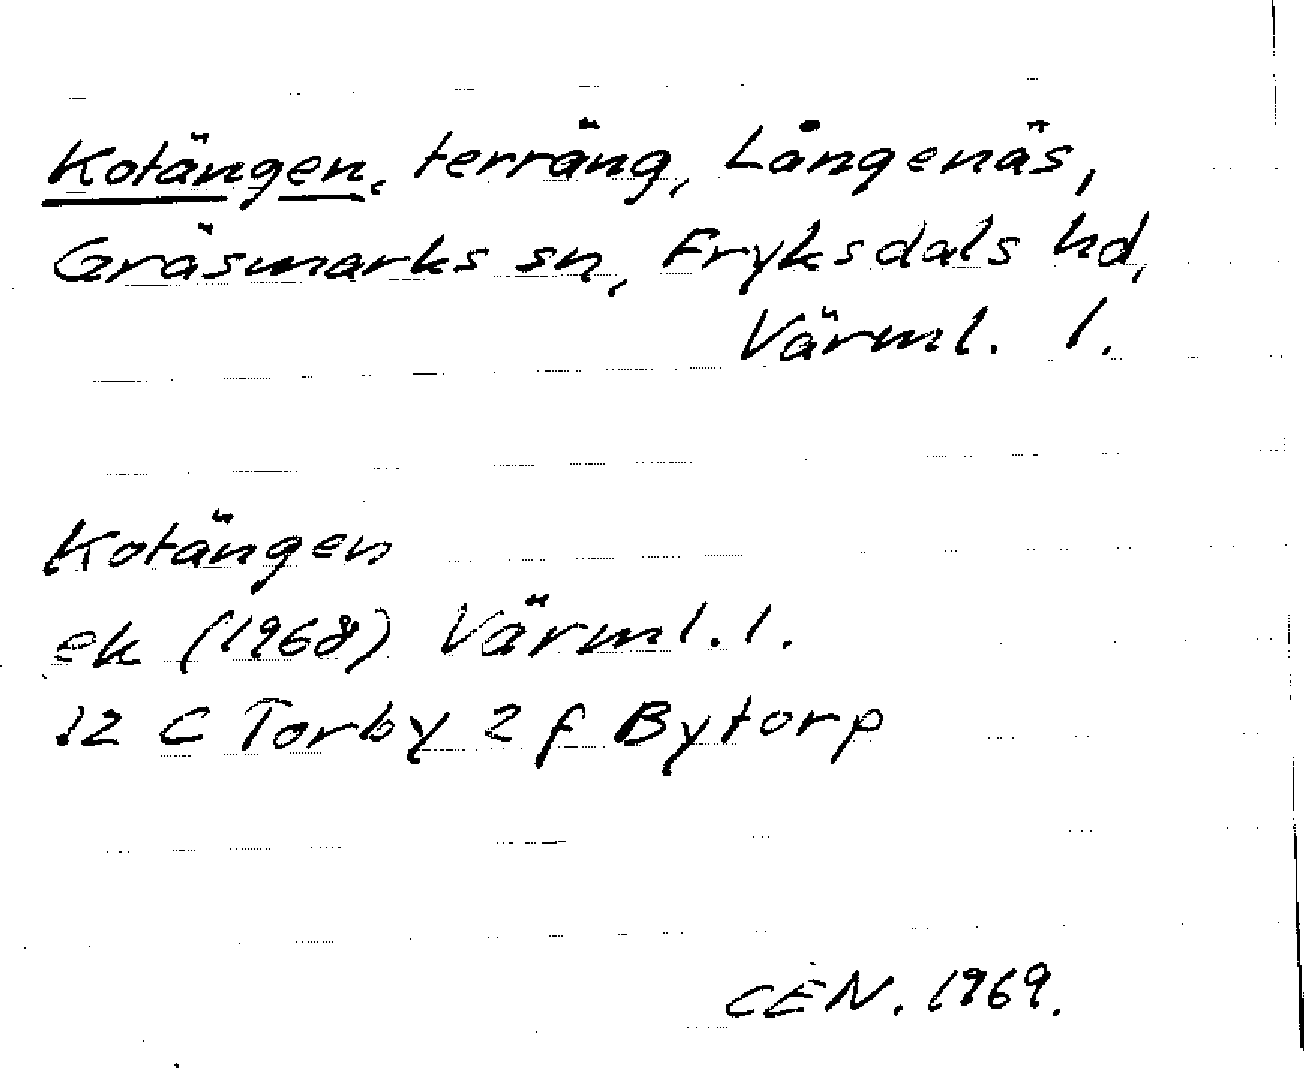 Kotängen, terräng, Långenäs,
Gräsmarks sn, Fryksdals hd,
Värml. l.
Kotängen
ek (1968) Värml. l.
12 C Torby 2 f Bytorp
CEN. 1969.